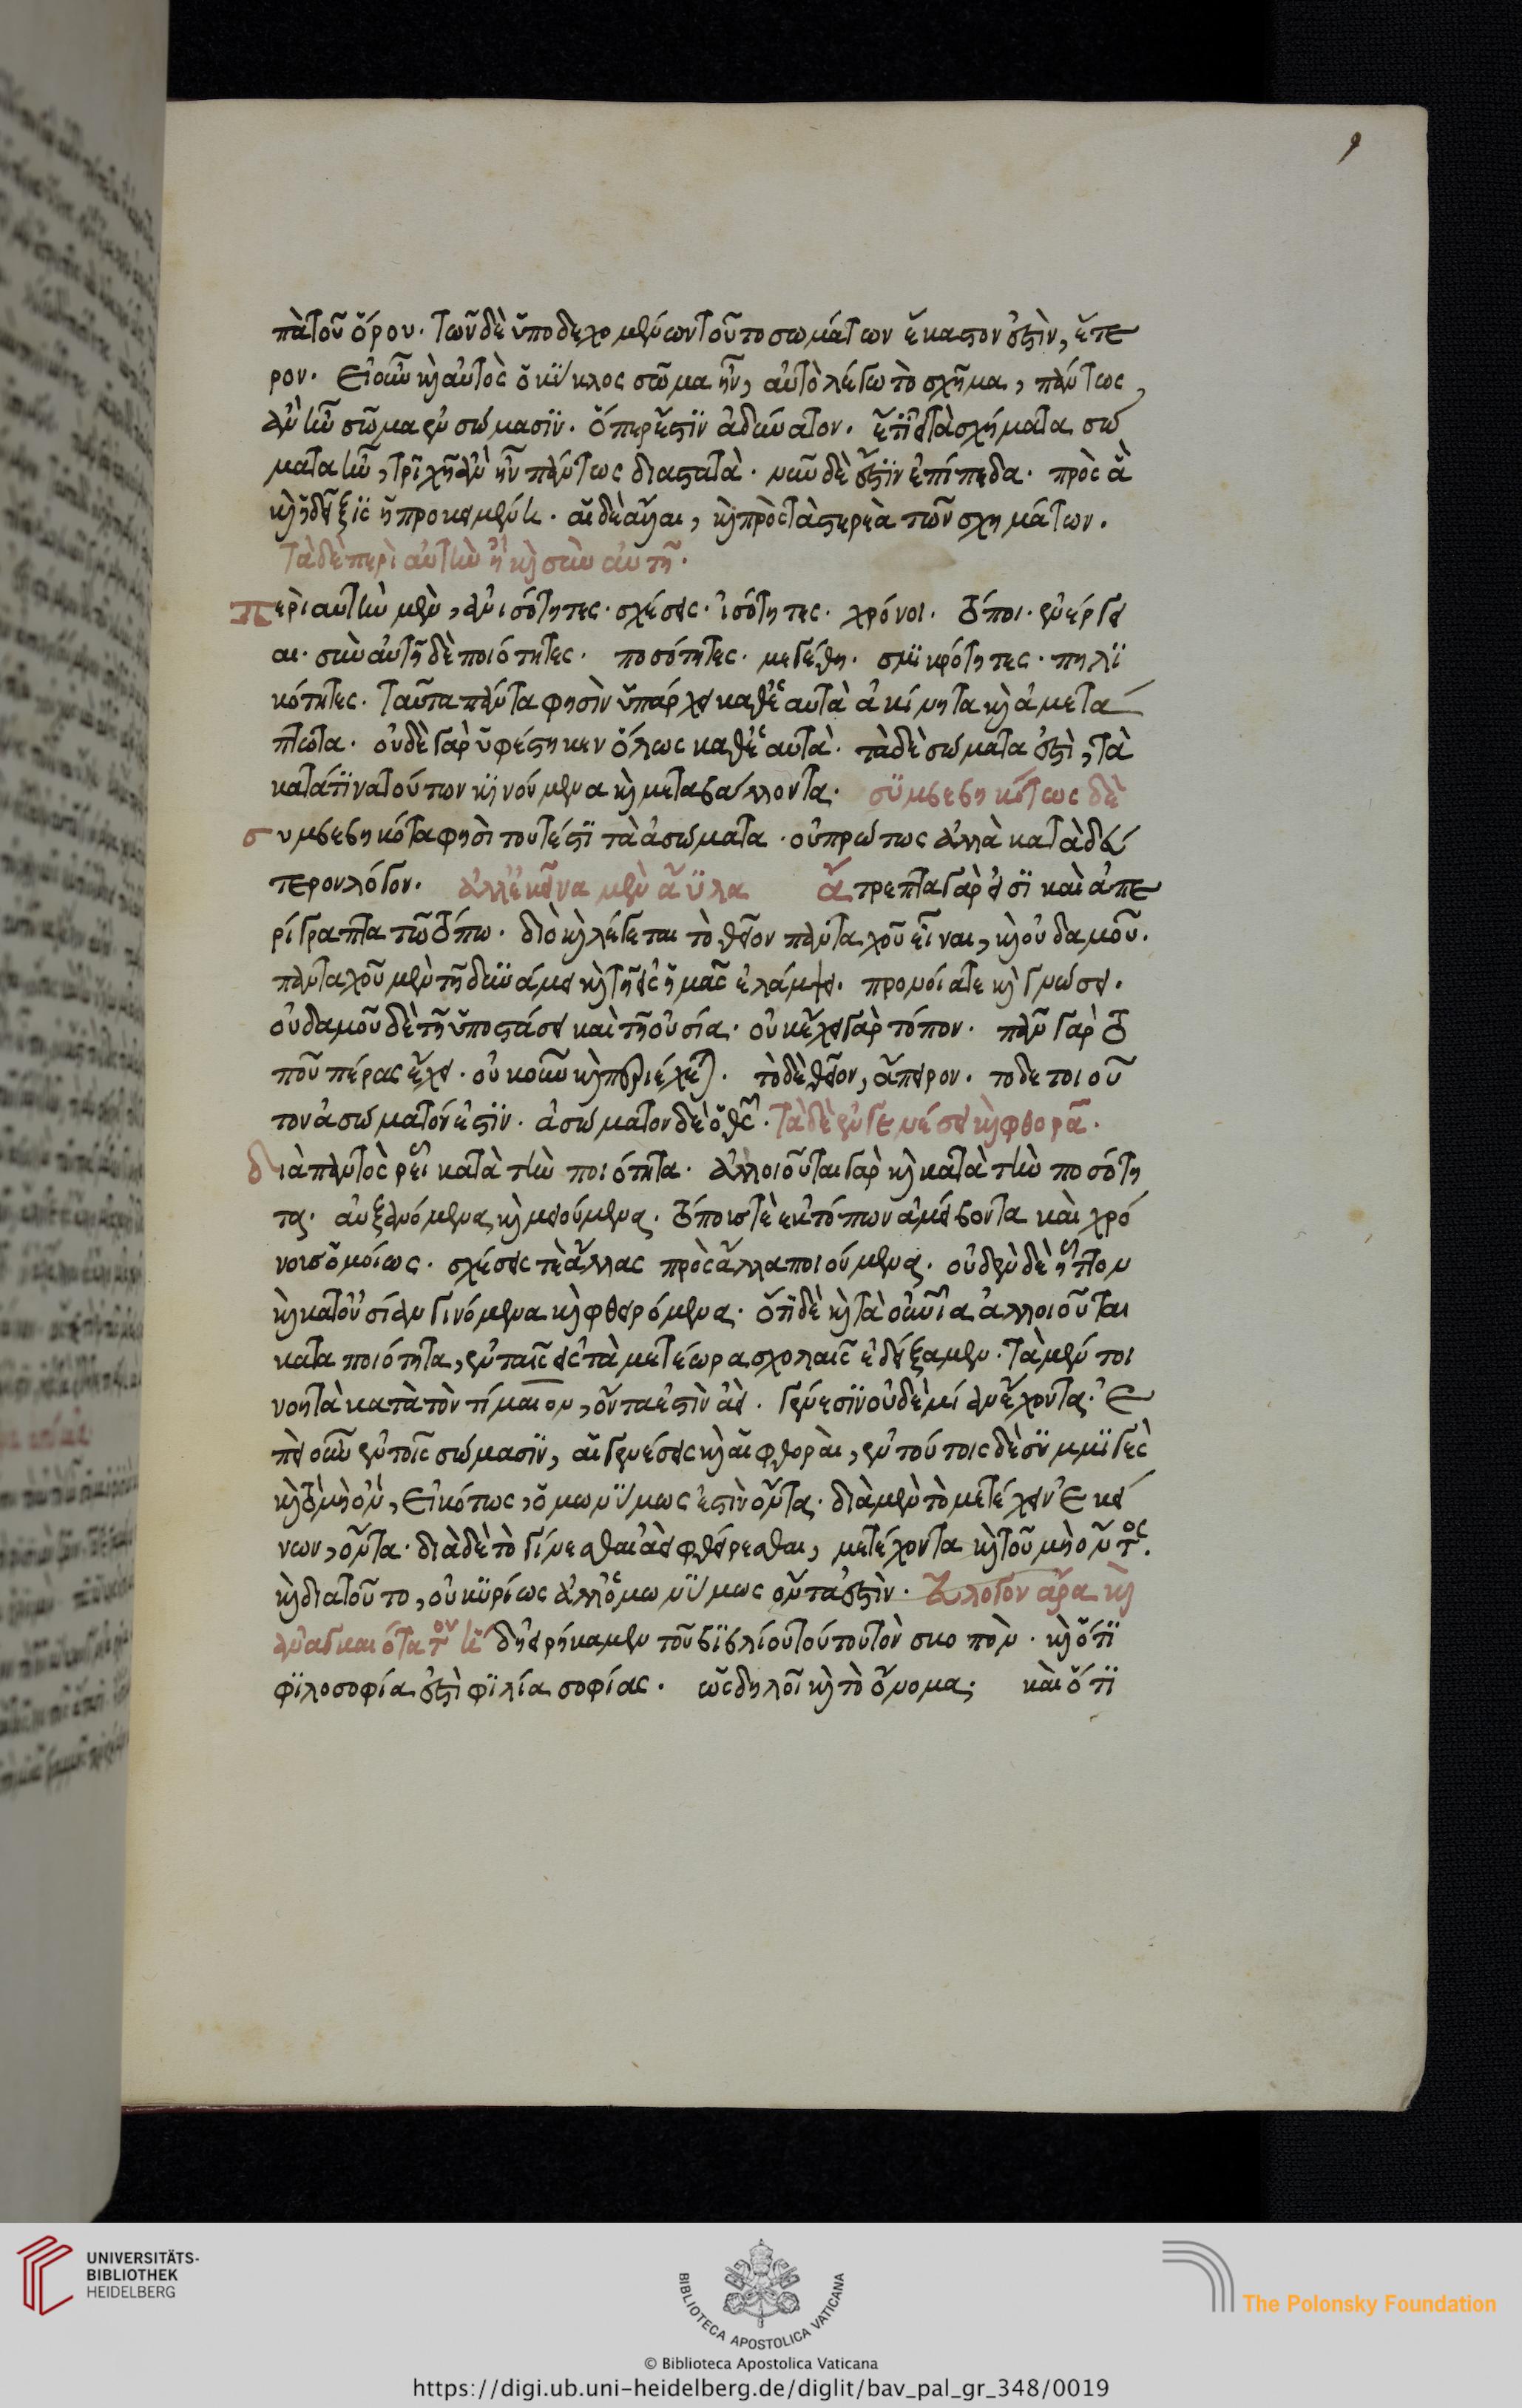 9
πὰτοῦ ὅρου. τῶν δὲ ὑποδεχομένων τοῦτο σωμάτων ἕκαστον ἐστὶν, ἕτε
ρον. εἰ οὖν καὶ αὐτὸς ὁ κύκλος σῶμα ἦν, αὐτὸ λέγω τὸ σχῆμα, πάντως
ἂν ἦν σῶμα ἐν σώμασιν. ὅπερ ἐστὶν ἀδύνατον. ἔτι εἰ τὰ σχήματα σώ
ματα ἦν, τριχῇ ἂν ἦν πάντως διαστατὰ. νῦν δὲ ἐστὶν ἐπίπεδα. πρὸς ἃ
καὶ ἡ δεῖξις ἡ προκειμένη. αἱ δὲ αὐταὶ, καὶ πρὸς τὰ στερεὰ τῶν σχημάτων.
τὰ δὲ περὶ αὐτὴν ἢ καὶ σὺν αὐτῇ.
περὶ αὐτὴν μὲν, ἀνισότητες. σχέσεις. ἰσότητες. χρόνοι. τόποι. ἐνέργει
αι. σὺν αὐτῇ δὲ ποιότητες. ποσότητες. μεγέθη. σμικρότητες. πηλι
κότητες. ταῦτα πάντα φησὶν ὑπάρχει καθ' ἑαυτὰ ἀκίνητα καὶ ἀμετά
πτωτα. οὐδὲ γὰρ ὑφέστηκεν ὅλως καθ' ἑαυτὰ. τὰ δὲ σώματα ἐστὶ, τὰ
κατά τινα τούτων κινούμενα καὶ μεταβάλλοντα. συμβεβηκότως δὲ
συμβεβηκότα φησὶ τουτέστι τὰ ἀσώματα. οὐ πρώτως ἀλλὰ κατὰ δεύ
τερον λόγον. ἀλλ' ἐκεῖνα μὲν ἄϋλα ἄτρεπτα γὰρ εἰσὶ καὶ ἀπε
ρίγραπτα τῷ τόπῳ. διὸ καὶ λέγεται τὸ θεῖον πανταχοῦ εἶναι, καὶ οὐδαμοῦ.
πανταχοῦ μὲν τῇ δυνάμει καὶ τῇ εἰς ἡμᾶς ἐλάμψει. προνοία τε καὶ γνώσει.
οὐδαμοῦ δὲ τῇ ὑποστάσει καὶ τῇ οὐσία. οὐκ ἔχει γὰρ τόπον. πᾶν γὰρ τό
που πέρας ἔχει. οὐκοῦν καὶ περιέχεται. τὸ δὲ θεῖον, ἄπειρον. τὸ δὲ τοιοῦ
τον ἀσώματόν ἐστιν. ἀσώματον δὲ ὁ θεὸς. τὰ δὲ ἐν γενέσει καὶ φθορᾶ.
διὰ παντὸς ῥεῖ κατὰ τὴν ποιότητα. ἀλλοιοῦται γὰρ καὶ κατὰ τὴν ποσότη
τα. αὐξανόμενα καὶ μειούμενα. τόποις τὲ ἐκ τόπων ἀμείβοντα καὶ χρό
νοις ὁμοίως. σχέσεις τὲ ἄλλας πρὸς ἄλλα ποιούμενα. οὐδὲν δὲ ἧττον
καὶ κατ' οὐσίαν γινόμενα καὶ φθειρόμενα. ὅτι δὲ καὶ τὰ οὐράνια ἀλλοιοῦται
κατα ποιότητα, ἐν ταῖς εἰς τὰ μετέωρα σχολαῖς ἐδείξαμεν. τὰ μέν τοι
νοητὰ κατὰ τὸν τίμαιον, ὄντα ἐστὶν ἀεὶ. γένεσιν οὐδὲ μίαν ἔχοντα. ἐ
πεὶ οὖν ἐν τοῖς σώμασιν, αἱ γενέσεις καὶ αἱ φθοραὶ, ἐν τούτοις δὲ συμμιγὲς
καὶ τὸ μὴ ὂν, εἰκότως, ὁμωνύμως ἐστὶν ὄντα. διὰ μὲν τὸ μετέχειν ἐκεί
νων, ὄντα. διὰ δὲ τὸ γίνεσθαι ἀεὶ φθείρεσθαι, μετέχοντα καὶ τοῦ μὴ ὄντος.
καὶ διατοῦτο, οὐ κυρίως ἀλλ' ὁμωνύμως ὄντα ἐστὶν. εὔλογον ἄρα καὶ
ἀναγκαιότατον ἤδη εἰρήκαμεν τοῦ βιβλίου τούτου τὸν σκοπὸν. καὶ ὅτι
φιλοσοφία ἐστὶ φιλία σοφίας. ὡς δηλοῖ καὶ τὸ ὄνομα. καὶ ὅτι
UNIVERSITÄTS-
BIBLIOTHEK
HEIDELBERG
BIBLIOTECA APOSTOLICA VATICANA
The Polonsky Foundation
© Biblioteca Apostolica Vaticana
https://digi.ub.uni-heidelberg.de/diglit/bav_pal_gr_348/0019